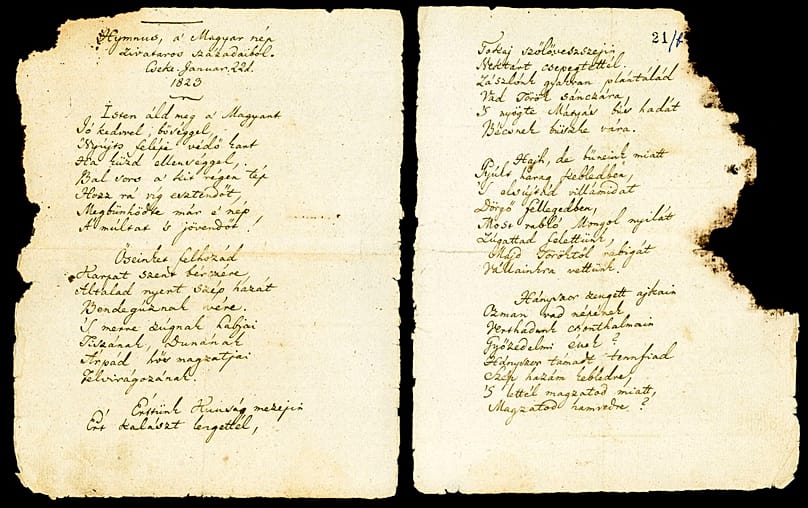 Hymnus, a' Magyar nép
zivataros századaiból.
Cseke. Januar. 22d.
1823
Isten áld meg a Magyart
Jó kedvvel, bőséggel,
Nyújts feléje védő kart
Ha küzd ellenséggel,
Bal sors a' kit régen tép
Hozz rá víg esztendőt,
Megbünhödte már e' nép
A' múltat 's jövendőt!
Őseinket felhozád
Kárpát szent bérczére,
Általad nyert szép hazát
Bendegúznak vére.
'S merre zúgnak habjai
Tiszának, Dunának
Árpád hős magzatjai
Felvirágozának.
Értünk Kunság mezején
Ért kalászt lengettél,
21/b
Tokaj szőlővesszején
Nektárt csepegtettél.
Zászlónk gyakran plántálád
Vad Török sánczára
'S nyögte Mátyás bús hadát
Bécsnek büszke vára.
Hajh, de bűneink miatt
Gyúlt harag kebledben,
'S elsújtád villámidat
Dörgő fellegedben,
Most rabló Mongol nyilát
Zúgattad felettünk,
Majd Töröktől rabigát
Vállainkra vettünk.
Hányszor zengett ajkain
Ozman vad népének
Verthadunk csonthalmain
Győzedelmi ének?
Hányszor támadt tennfiad
Szép hazám kebledre,
'S lettél magzatod miatt,
Magzatod hamvedre?